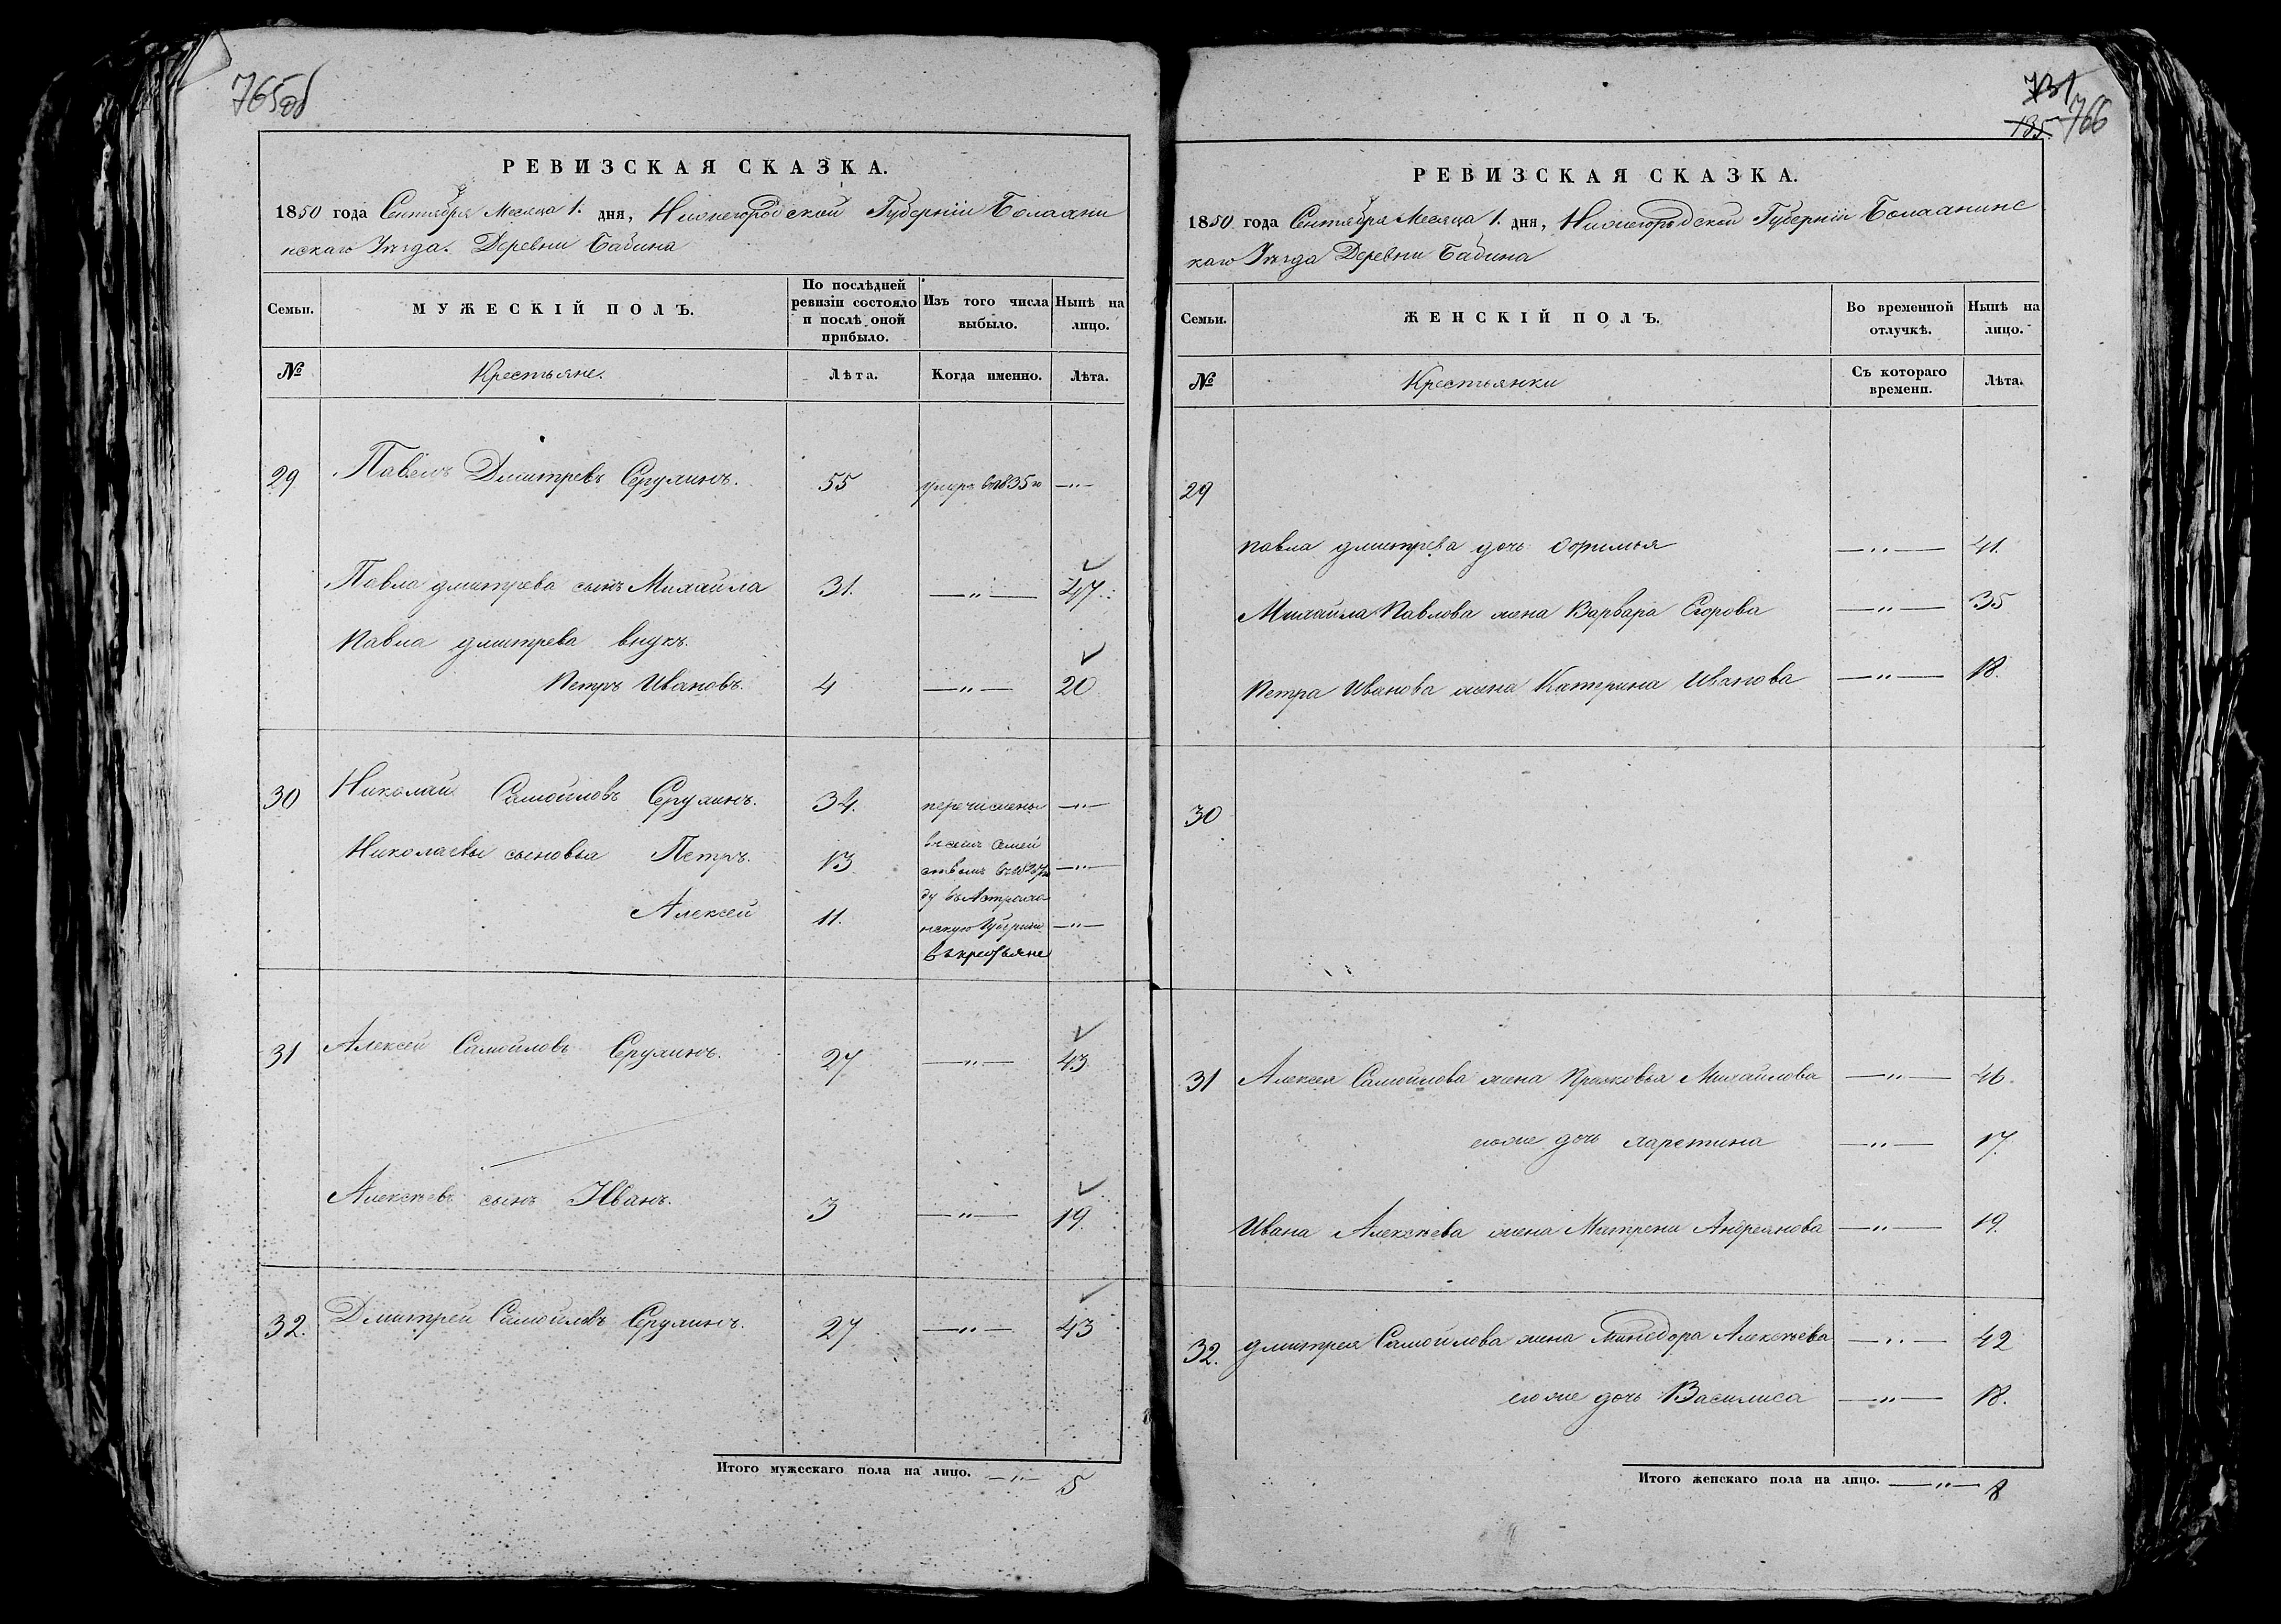 765об
РЕВИЗСКАЯ СКАЗКА.
1850 года Сентября Месяца 1. дня, Нижегородской Губернiи Балахни
нскаго Уѣзда. Деревни Бабина
Семьи.
МУЖЕСКІЙ ПОЛЪ.
По послѣдней
ревизіи состояло
и послѣ оной
прибыло.
Изъ того числа
выбыло.
Нынѣ на
лицо.
№
Крестьяне.
Лѣта.
Когда именно.
Лѣта.
29 Павелъ Дмитревъ 55 умеръ въ 1835 го —"—
Павла дмитрева сынъ Михайла 31. —"— 47
Павла дмитрева внукъ.
Петръ Ивановъ. 4 —"— 20
30 Николай Самойловъ 34. перечислены —"—
Николаевы сыновья Петръ. 13 —"—
Алексей 11. —"—
всемъ семей
ствомъ въ
ду въ Астраха
нскую Губернiю
въ крестьяне
31 Алексей Самойловъ 27 —"— 43
Алексѣевъ сынъ Иванъ. 3 —"— 19.
32. Дмитрей Самойловъ 27 —"— 43
Итого мужескаго пола на лицо. —"— 5
731
135. 766
РЕВИЗСКАЯ СКАЗКА.
1850 года Сентября Месяца 1. дня, Нижегородской Губернiи Балахнинс
каго Уѣзда Деревни Бабина
Семьи.
ЖЕНСКІЙ ПОЛЪ.
Во временной
отлучкѣ.
Нынѣ на
лицо.
№
Крестьянки
Съ котораго
времени.
Лѣта.
29
Павла дмитрева дочь —"— 41.
Михайла Павлова жена Варвара Егорова —"— 35
Петра Иванова жена Катерина Иванова —"— 18.
30
31 Алексея Самойлова жена Прасковья Михайлова —"— 46.
его же дочь —"— 17.
Ивана Алексѣева жена Матрена Андреянова —"— 19.
32. дмитрея Самойлова жена Минодора Алексѣева —"— 42
его же дочь Василиса —"— 18.
Итого женскаго пола на лицо. —"— 8